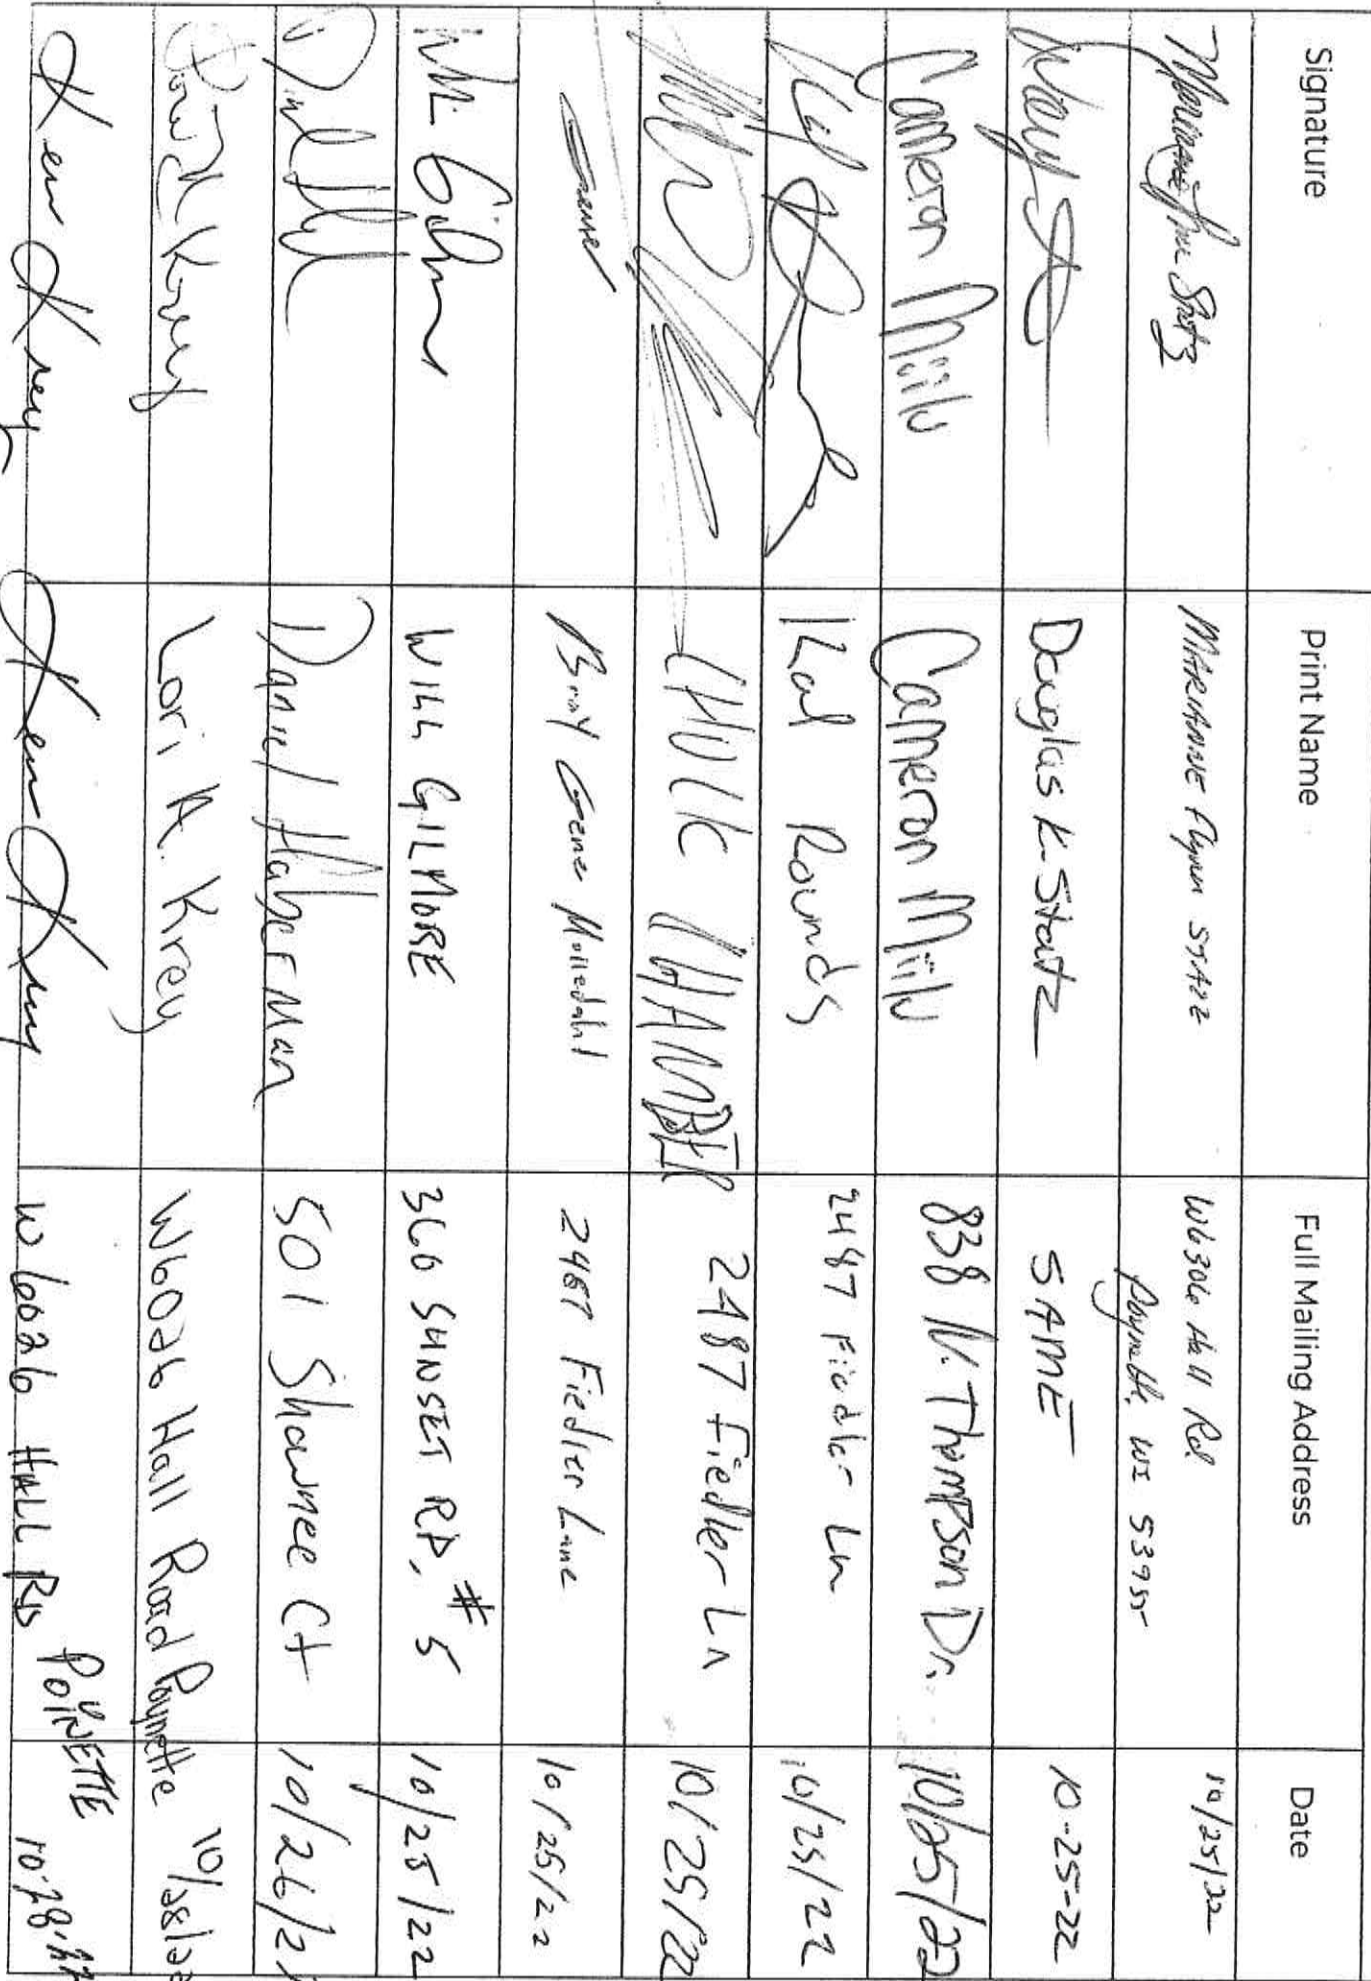 Signature Print Name Full Mailing Address Date
MARIANNE Flynn STATZ W6306 Hall Rd 10/25/22
Poynette, WI 53955
Douglas K. Statz SAME 10-25-22
Cameron Miilu Cameron Miilu 838 N. Thompson Dr. 10/25/22
Kal Rounds 2487 Fiedler Ln 10/25/22
2487 Fiedler Ln 10/25/22
Gene 2487 Fiedler Lane 10/25/22
WILL GILMORE 360 SUNSET RD, #5 10/25/22
Daniel Haberman 501 Shawnee Ct 10/26/2
Lori K Krey Lori A. Krey W6026 Hall Road Poynette
Ken Krey Ken Krey W6026 HALL RD POYNETTE 10.28.22